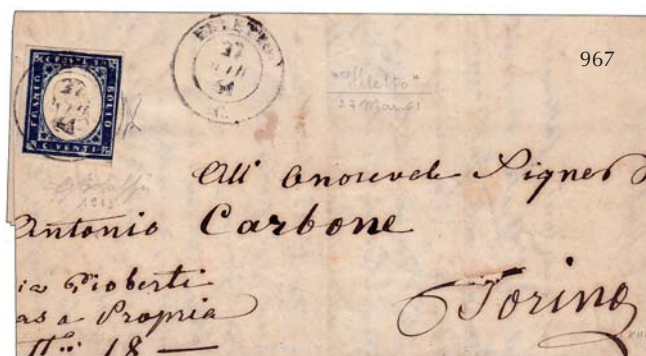 967
FRANCO BOLLO
C. VENTI
27
MAR
61
27
MAR
61
"Filetto"
27 Mar. 61
All' Onorevole Signor
Antonio Carbone
Gioberti
Casa Propria
N° 18 —
Torino